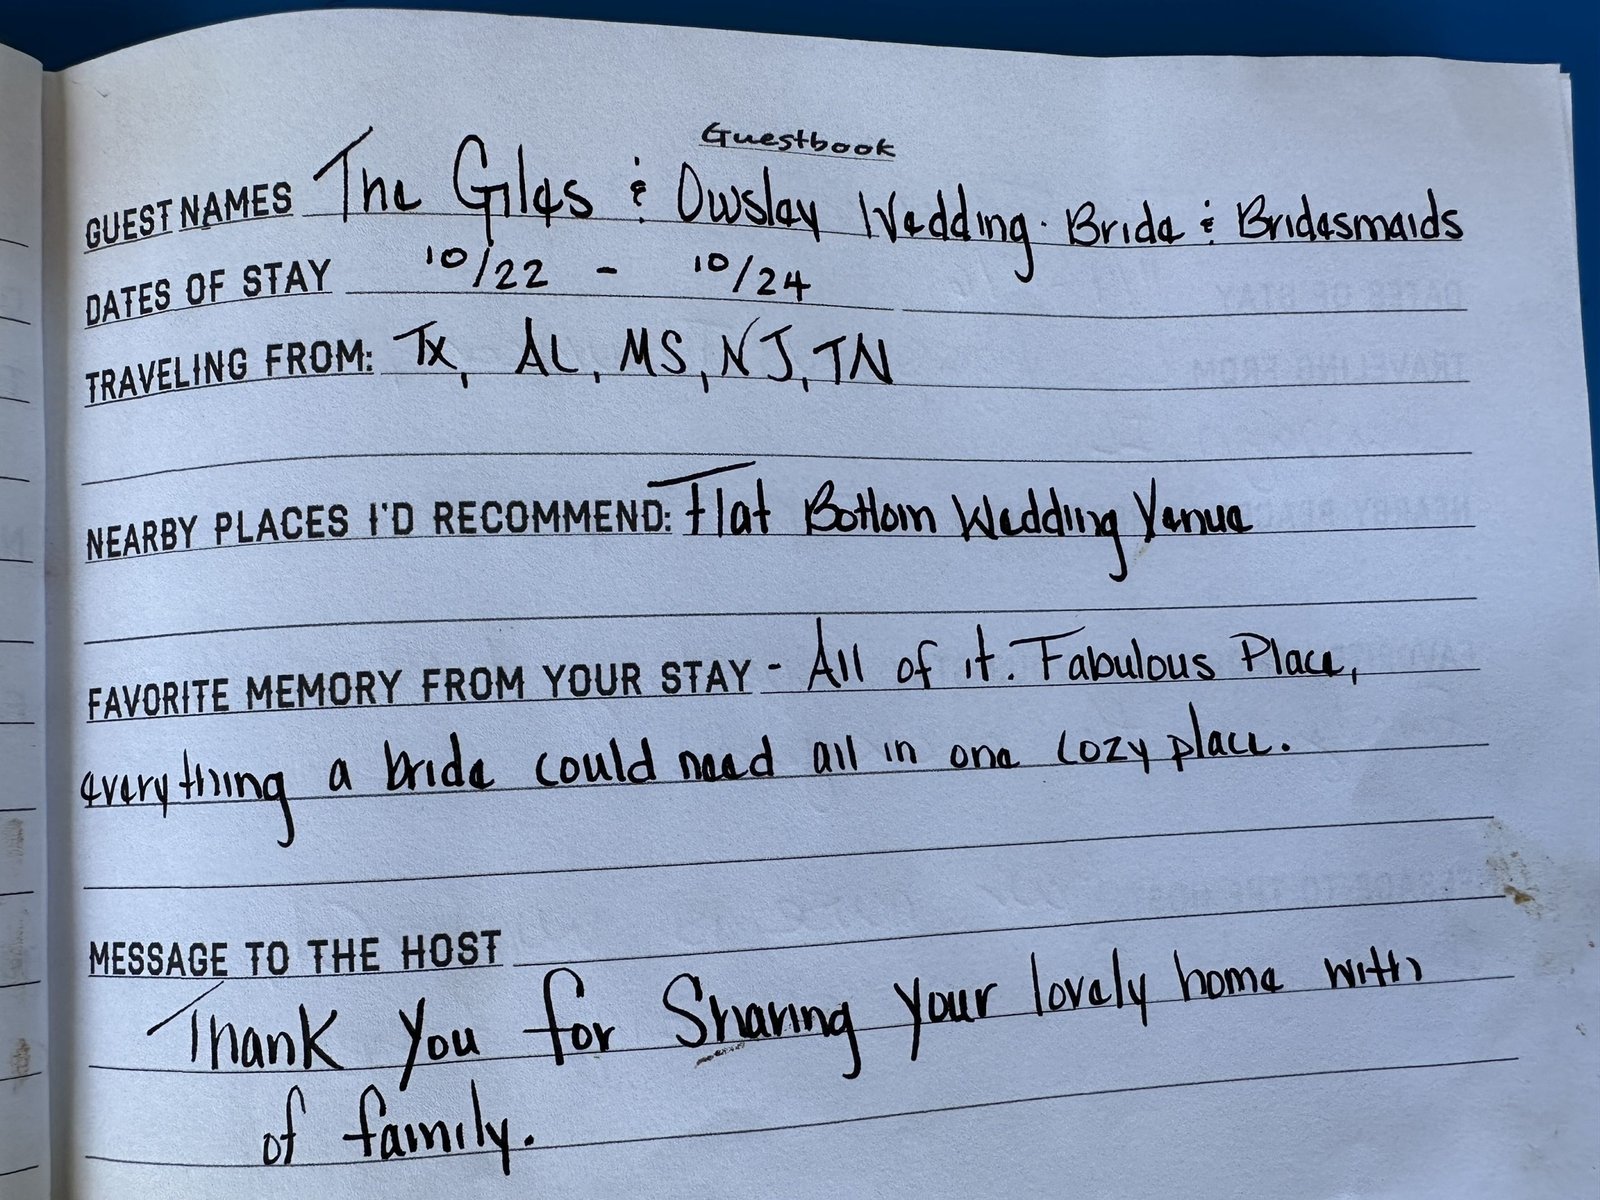 Guestbook
GUEST NAMES The Giles & Owsley Wedding. Bride & Bridesmaids
DATES OF STAY 10/22 - 10/24
TRAVELING FROM: Tx, AL, MS, NJ, TN
NEARBY PLACES I'D RECOMMEND: Flat Bottom Wedding Venue
FAVORITE MEMORY FROM YOUR STAY - All of it. Fabulous Place,
everything a bride could need all in one cozy place.
MESSAGE TO THE HOST
Thank you for Sharing your lovely home with
of family.